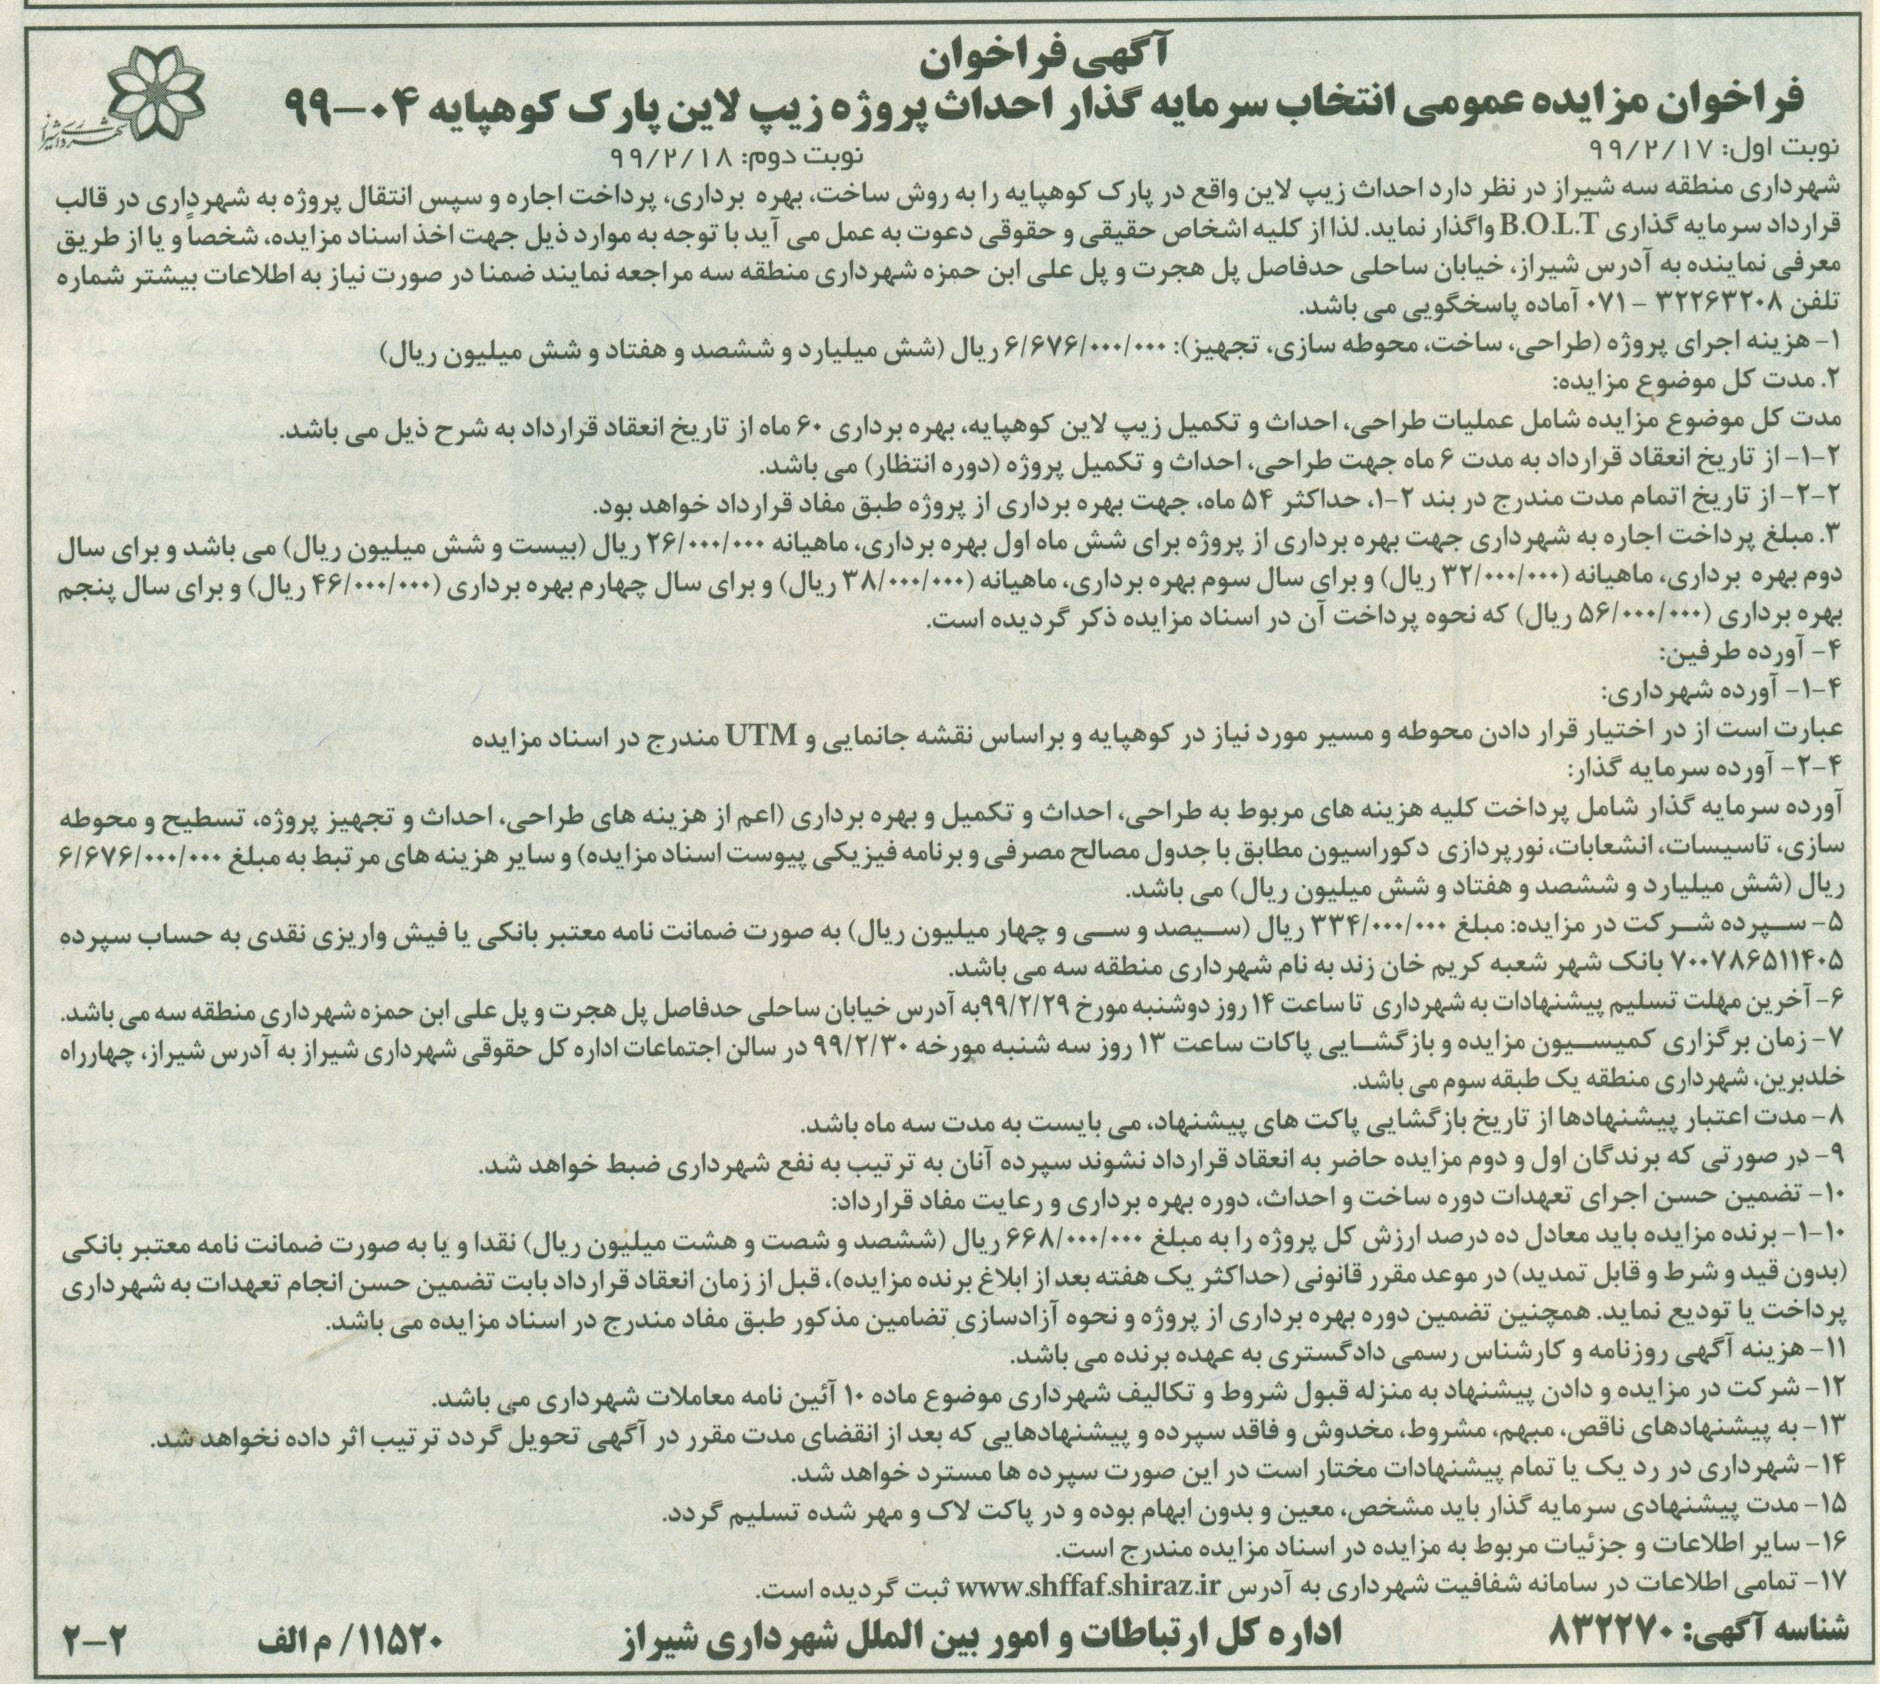 آگهی فراخوان
فراخوان مزایده عمومی انتخاب سرمایه گذار احداث پروژه زیپ لاین پارک کوهپایه ۰۴-۹۹
شهرداری شیراز
نوبت اول: ۹۹/۲/۱۷
نوبت دوم: ۹۹/۲/۱۸
شهرداری منطقه سه شیراز در نظر دارد احداث زیپ لاین واقع در پارک کوهپایه را به روش ساخت، بهره برداری، پرداخت اجاره و سپس انتقال پروژه به شهرداری در قالب
قرارداد سرمایه گذاری B.O.L.T واگذار نماید. لذا از کلیه اشخاص حقیقی و حقوقی دعوت به عمل می آید با توجه به موارد ذیل جهت اخذ اسناد مزایده، شخصاً و یا از طریق
معرفی نماینده به آدرس شیراز، خیابان ساحلی حدفاصل پل هجرت و پل علی ابن حمزه شهرداری منطقه سه مراجعه نمایند ضمنا در صورت نیاز به اطلاعات بیشتر شماره
تلفن ۳۲۲۶۳۲۰۸ - ۰۷۱ آماده پاسخگویی می باشد.
۱- هزینه اجرای پروژه (طراحی، ساخت، محوطه سازی، تجهیز): ۶/۶۷۶/۰۰۰/۰۰۰ ریال (شش میلیارد و ششصد و هفتاد و شش میلیون ریال)
۲. مدت کل موضوع مزایده:
مدت کل موضوع مزایده شامل عملیات طراحی، احداث و تکمیل زیپ لاین کوهپایه، بهره برداری ۶۰ ماه از تاریخ انعقاد قرارداد به شرح ذیل می باشد.
۲-۱- از تاریخ انعقاد قرارداد به مدت ۶ ماه جهت طراحی، احداث و تکمیل پروژه (دوره انتظار) می باشد.
۲-۲- از تاریخ اتمام مدت مندرج در بند ۲-۱، حداکثر ۵۴ ماه، جهت بهره برداری از پروژه طبق مفاد قرارداد خواهد بود.
۳. مبلغ پرداخت اجاره به شهرداری جهت بهره برداری از پروژه برای شش ماه اول بهره برداری، ماهیانه ۲۶/۰۰۰/۰۰۰ ریال (بیست و شش میلیون ریال) می باشد و برای سال
دوم بهره برداری، ماهیانه (۳۲/۰۰۰/۰۰۰ ریال) و برای سال سوم بهره برداری، ماهیانه (۳۸/۰۰۰/۰۰۰ ریال) و برای سال چهارم بهره برداری (۴۶/۰۰۰/۰۰۰ ریال) و برای سال پنجم
بهره برداری (۵۶/۰۰۰/۰۰۰ ریال) که نحوه پرداخت آن در اسناد مزایده ذکر گردیده است.
۴- آورده طرفین:
۴-۱- آورده شهرداری:
عبارت است از در اختیار قرار دادن محوطه و مسیر مورد نیاز در کوهپایه و براساس نقشه جانمایی و UTM مندرج در اسناد مزایده
۴-۲- آورده سرمایه گذار:
آورده سرمایه گذار شامل پرداخت کلیه هزینه های مربوط به طراحی، احداث و تکمیل و بهره برداری (اعم از هزینه های طراحی، احداث و تجهیز پروژه، تسطیح و محوطه
سازی، تاسیسات، انشعابات، نورپردازی دکوراسیون مطابق با جدول مصالح مصرفی و برنامه فیزیکی پیوست اسناد مزایده) و سایر هزینه های مرتبط به مبلغ ۶/۶۷۶/۰۰۰/۰۰۰
ریال (شش میلیارد و ششصد و هفتاد و شش میلیون ریال) می باشد.
۵- سپرده شرکت در مزایده: مبلغ ۳۳۴/۰۰۰/۰۰۰ ریال (سیصد و سی و چهار میلیون ریال) به صورت ضمانت نامه معتبر بانکی یا فیش واریزی نقدی به حساب سپرده
۷۰۰۷۸۶۵۱۱۴۰۵ بانک شهر شعبه کریم خان زند به نام شهرداری منطقه سه می باشد.
۶- آخرین مهلت تسلیم پیشنهادات به شهرداری تا ساعت ۱۴ روز دوشنبه مورخ ۹۹/۲/۲۹به آدرس خیابان ساحلی حدفاصل پل هجرت و پل علی ابن حمزه شهرداری منطقه سه می باشد.
۷- زمان برگزاری کمیسیون مزایده و بازگشایی پاکات ساعت ۱۳ روز سه شنبه مورخه ۹۹/۲/۳۰ در سالن اجتماعات اداره کل حقوقی شهرداری شیراز به آدرس شیراز، چهارراه
خلدبرین، شهرداری منطقه یک طبقه سوم می باشد.
۸- مدت اعتبار پیشنهادها از تاریخ بازگشایی پاکت های پیشنهاد، می بایست به مدت سه ماه باشد.
۹- در صورتی که برندگان اول و دوم مزایده حاضر به انعقاد قرارداد نشوند سپرده آنان به ترتیب به نفع شهرداری ضبط خواهد شد.
۱۰- تضمین حسن اجرای تعهدات دوره ساخت و احداث، دوره بهره برداری و رعایت مفاد قرارداد:
۱۰-۱- برنده مزایده باید معادل ده درصد ارزش کل پروژه را به مبلغ ۶۶۸/۰۰۰/۰۰۰ ریال (ششصد و شصت و هشت میلیون ریال) نقدا و یا به صورت ضمانت نامه معتبر بانکی
(بدون قید و شرط و قابل تمدید) در موعد مقرر قانونی (حداکثر یک هفته بعد از ابلاغ برنده مزایده)، قبل از زمان انعقاد قرارداد بابت تضمین حسن انجام تعهدات به شهرداری
پرداخت یا تودیع نماید. همچنین تضمین دوره بهره برداری از پروژه و نحوه آزادسازی تضامین مذکور طبق مفاد مندرج در اسناد مزایده می باشد.
۱۱- هزینه آگهی روزنامه و کارشناس رسمی دادگستری به عهده برنده می باشد.
۱۲- شرکت در مزایده و دادن پیشنهاد به منزله قبول شروط و تکالیف شهرداری موضوع ماده ۱۰ آئین نامه معاملات شهرداری می باشد.
۱۳- به پیشنهادهای ناقص، مبهم، مشروط، مخدوش و فاقد سپرده و پیشنهادهایی که بعد از انقضای مدت مقرر در آگهی تحویل گردد ترتیب اثر داده نخواهد شد.
۱۴- شهرداری در رد یک یا تمام پیشنهادات مختار است در این صورت سپرده ها مسترد خواهد شد.
۱۵- مدت پیشنهادی سرمایه گذار باید مشخص، معین و بدون ابهام بوده و در پاکت لاک و مهر شده تسلیم گردد.
۱۶- سایر اطلاعات و جزئیات مربوط به مزایده در اسناد مزایده مندرج است.
۱۷- تمامی اطلاعات در سامانه شفافیت شهرداری به آدرس www.shffaf.shiraz.ir ثبت گردیده است.
شناسه آگهی: ۸۳۲۲۷۰
اداره کل ارتباطات و امور بین الملل شهرداری شیراز
۱۱۵۲۰/ م الف
۲-۲